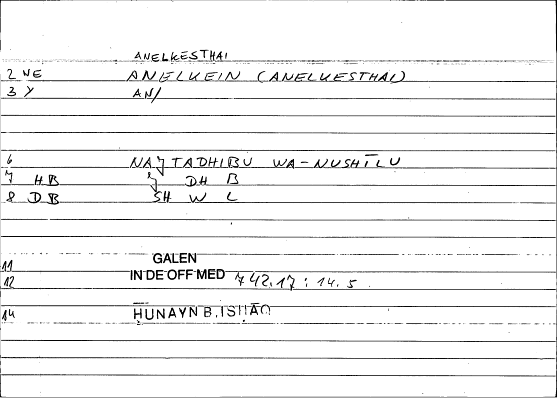 ANELKESTHAI
2 NE ANELKEIN (ANELKESTHAI)
3 Y AN/
6 NAJTADHIBU WA-NUSHĪLU
7 HB J DH B
8 DB SH W L
11 GALEN
12 IN DE OFF MED 742.17 : 14.5
14 ḤUNAYN B. ISḤĀQ